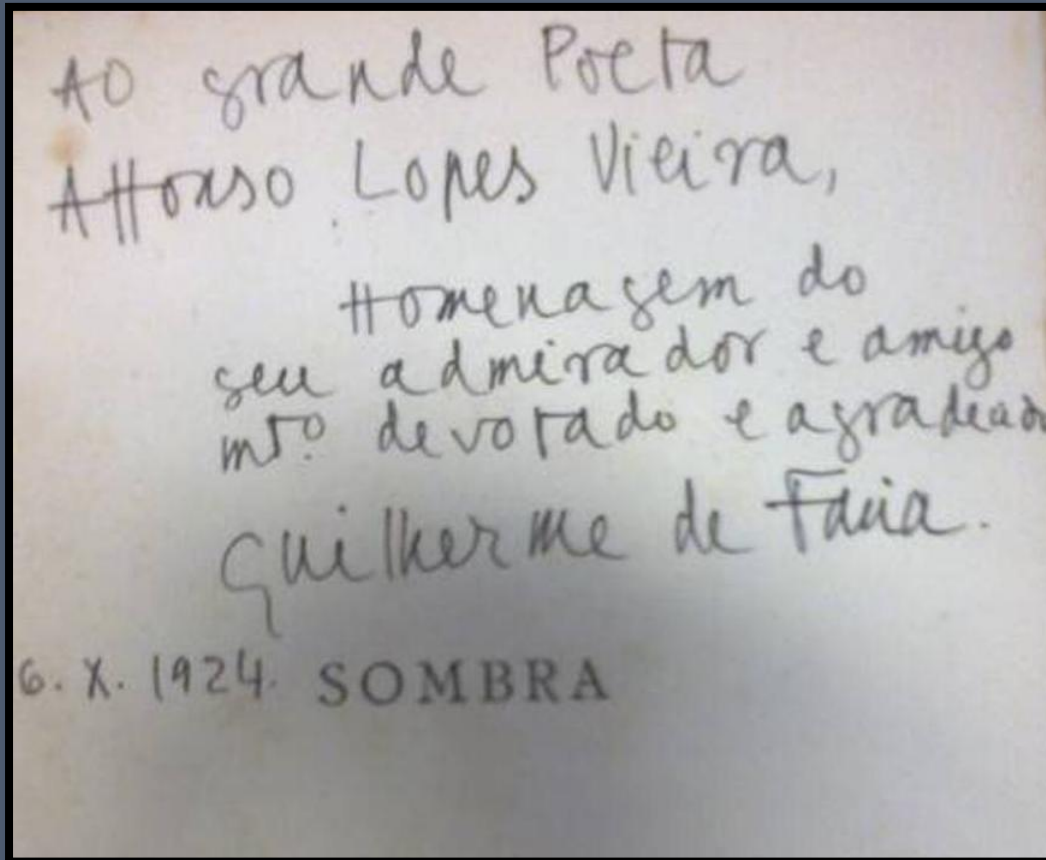 Ao grande Poeta
Affonso Lopes Vieira,
Homenagem do
seu admirador e amigo
mto. devotado e agradecido
Guilherme de Faria.
6. X. 1924. SOMBRA